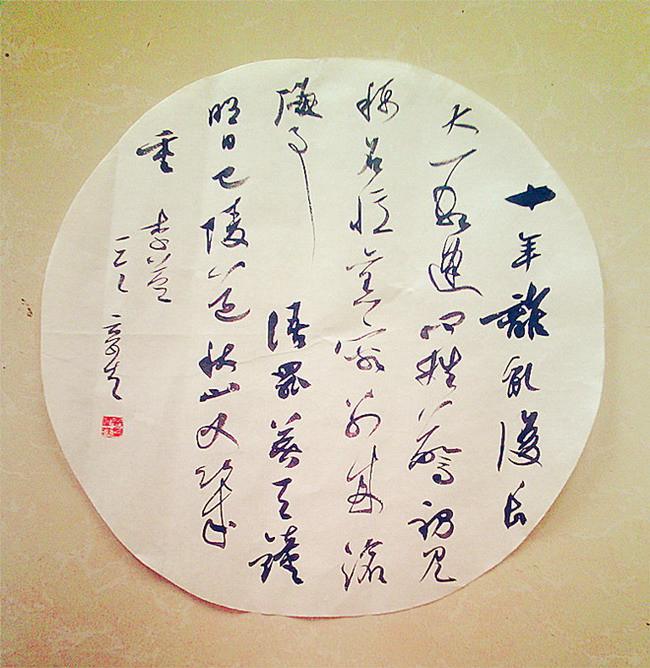 十年離亂後長
大一相逢問姓驚初見
稱名憶舊容別來滄
海事語罷暮天鐘
明日巴陵道秋山又幾
重 李益